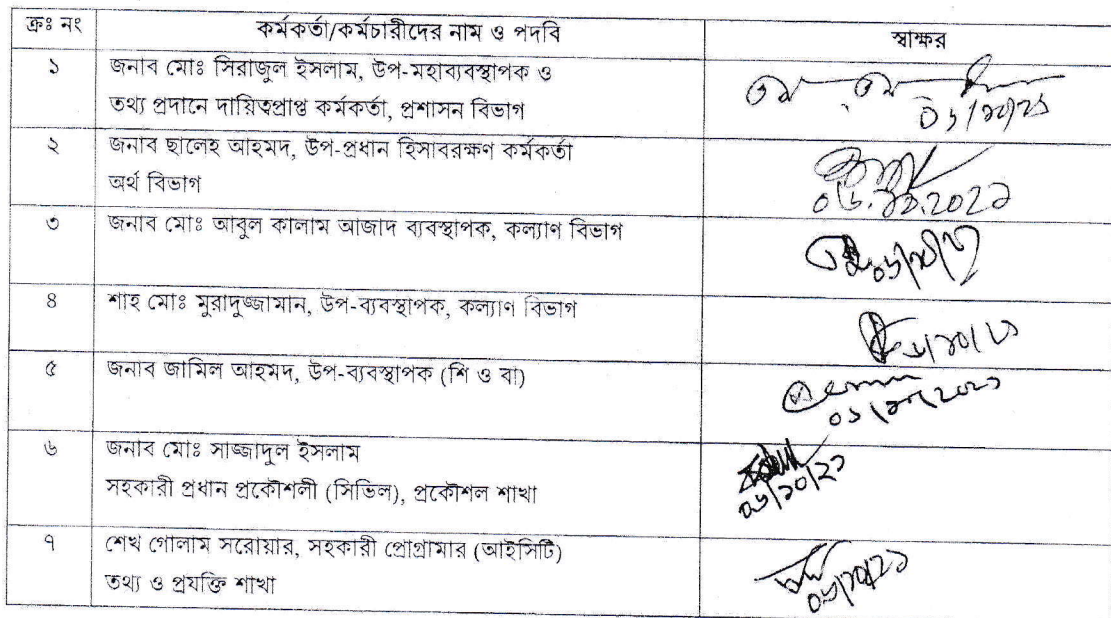 ক্রঃ নং কর্মকর্তা/কর্মচারীদের নাম ও পদবি স্বাক্ষর
১ জনাব মোঃ সিরাজুল ইসলাম, উপ-মহাব্যবস্থাপক ও
তথ্য প্রদানে দায়িত্বপ্রাপ্ত কর্মকর্তা, প্রশাসন বিভাগ
২ জনাব ছালেহ আহমদ, উপ-প্রধান হিসাবরক্ষণ কর্মকর্তা
অর্থ বিভাগ
৩ জনাব মোঃ আবুল কালাম আজাদ ব্যবস্থাপক, কল্যাণ বিভাগ
৪ শাহ মোঃ মুরাদুজ্জামান, উপ-ব্যবস্থাপক, কল্যাণ বিভাগ
৫ জনাব জামিল আহমদ, উপ-ব্যবস্থাপক (শি ও বা)
৬ জনাব মোঃ সাজ্জাদুল ইসলাম
সহকারী প্রধান প্রকৌশলী (সিভিল), প্রকৌশল শাখা
৭ শেখ গোলাম সরোয়ার, সহকারী প্রোগ্রামার (আইসিটি)
তথ্য ও প্রযক্তি শাখা